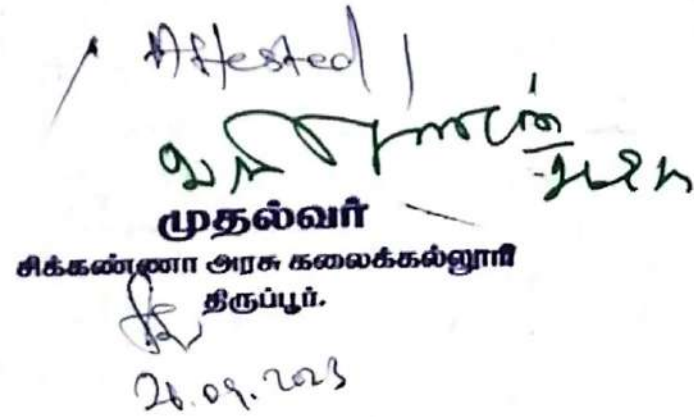 Attested
முதல்வர்
சிக்கண்ணா அரசு கலைக்கல்லூரி
திருப்பூர்.
26.09.2023